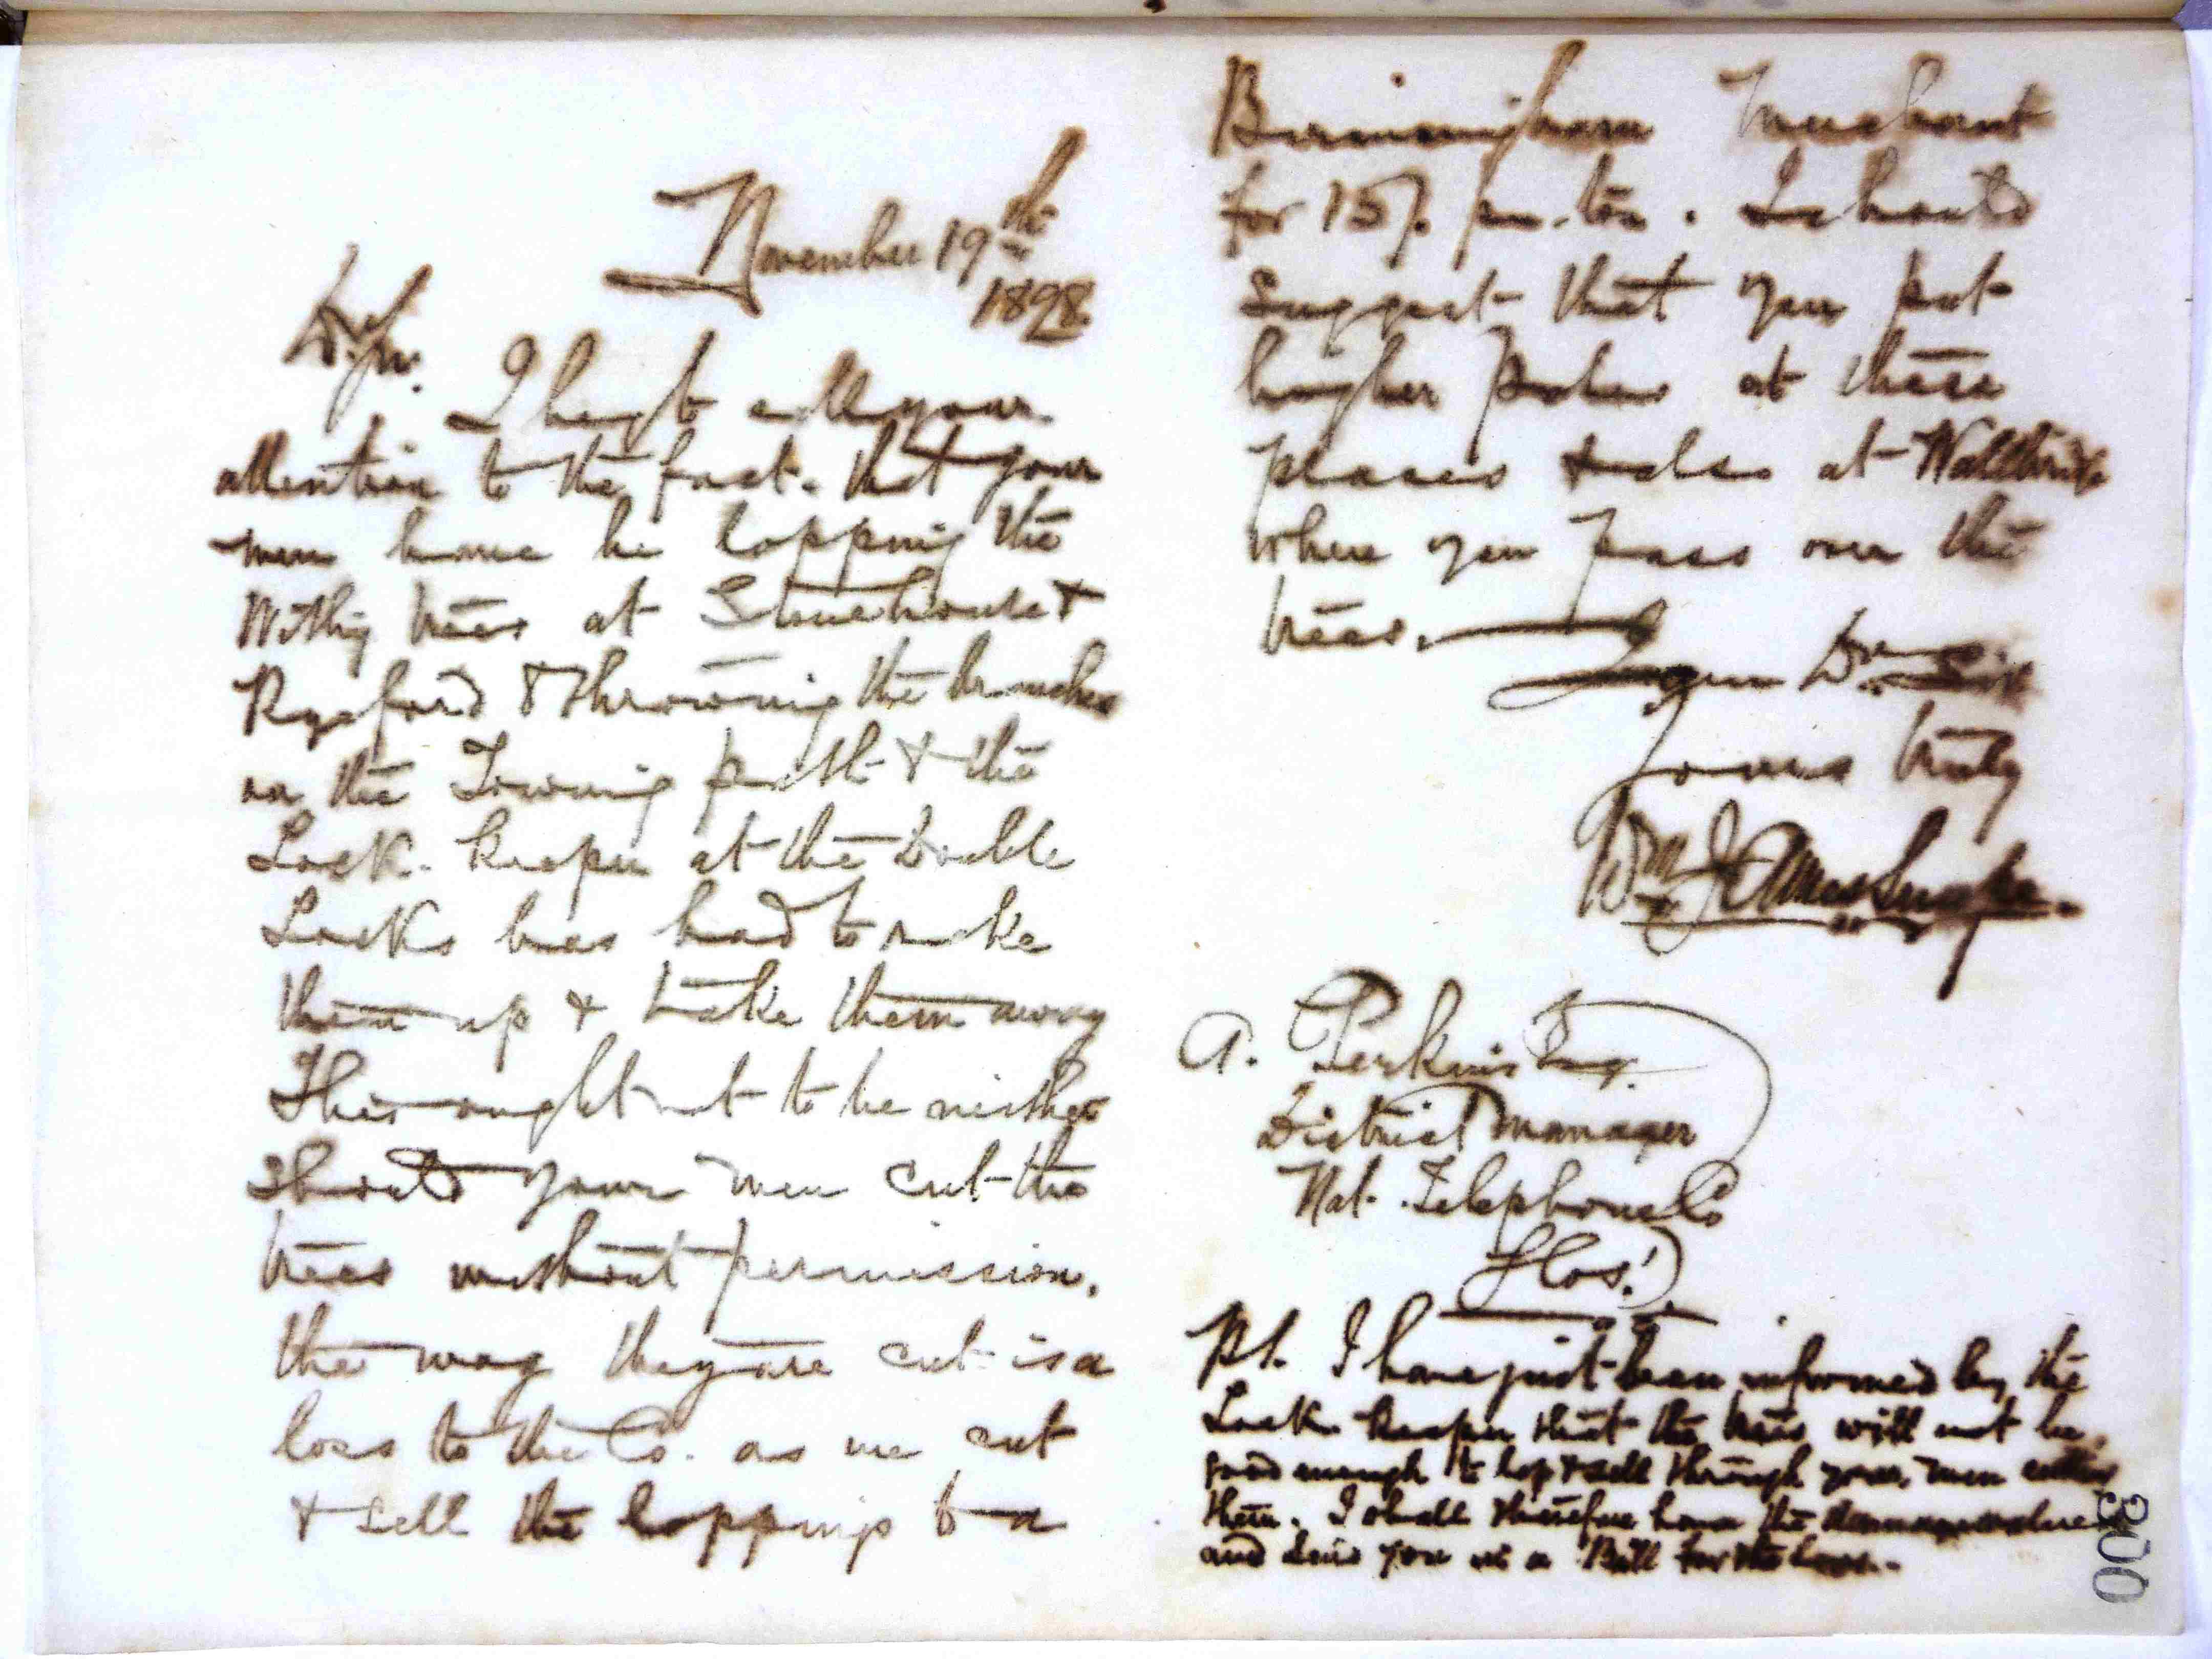 November 19th
1898.
Dr Sir.
I beg to call your
attention to the fact. that your
men have be lopping the
Withy trees at Stonehouse &
Ryeford & throwing the branches
on the Towing path & the
Lock. keeper at the Double
Locks has had to make
them up & take them away
This ought not to be neither
should your men cut the
trees without permission.
the way they are cut is a
loss to the Co. as we cut
& sell the loppings to a
Birmingham Merchant
for 15/. per ton. I should
suggest that you put
higher poles at these
places & also at Wallbridge
where you pass over the
trees.
I am Dr Sir
Yours truly
Wm J. Ames Snape.
A. Perkins Esq.
District Manager
Nat. Telephone Co
Glos!
PS. I have just been informed by the
Lock keeper that the trees will not be
good enough to lop & sell through your men cutting
them. I shall therefore have the
and send you in a Bill for the loss.
300